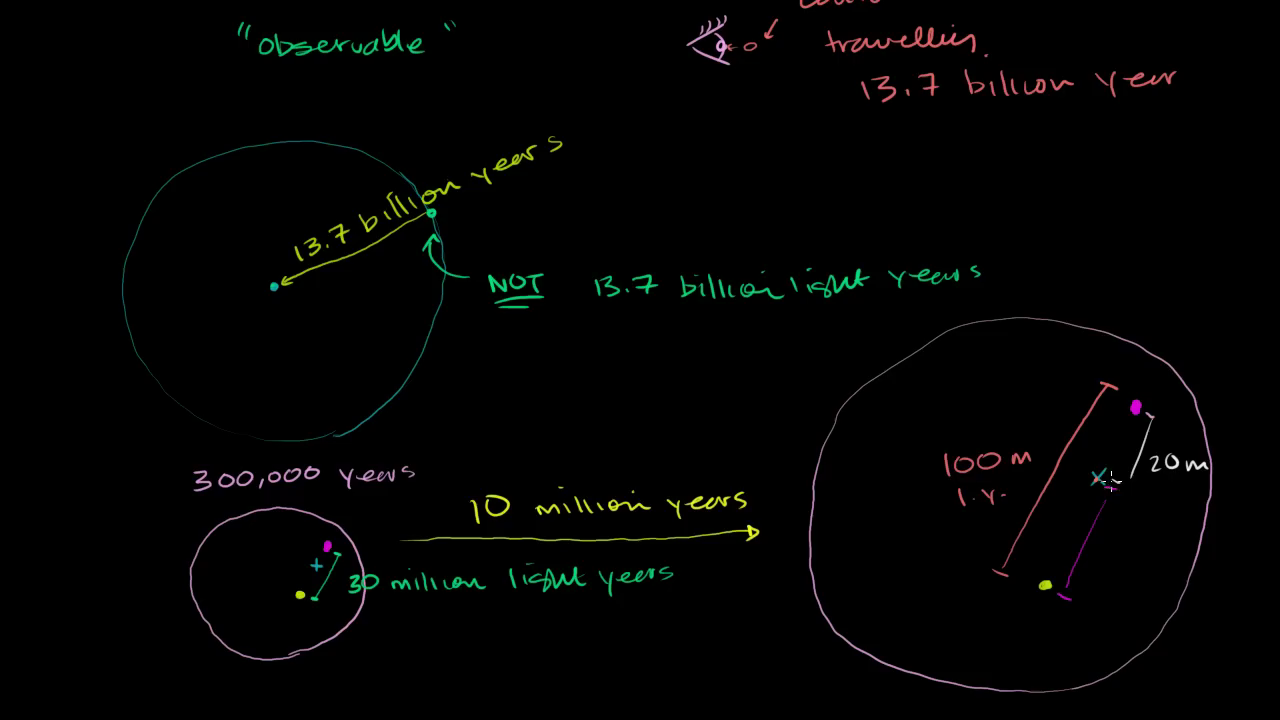 "observable"
travelling
13.7 billion year
13.7 billion years
NOT 13.7 billion light years
300,000 years
10 million years
30 million light years
100 m
l.y.
20 m